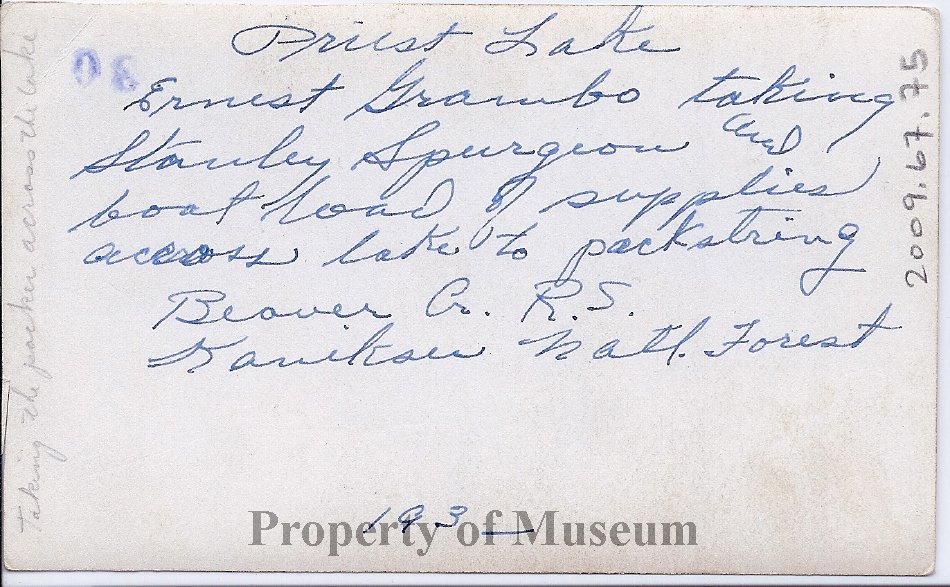 Priest Lake
Ernest Grambo taking
Stanley Spurgeon and
boat load of supplies
across lake to packstring
Beaver Cr. R.S.
Kaniksu Natl. Forest
193_
Property of Museum
Taking the packer across the lake
30
2009.67.75